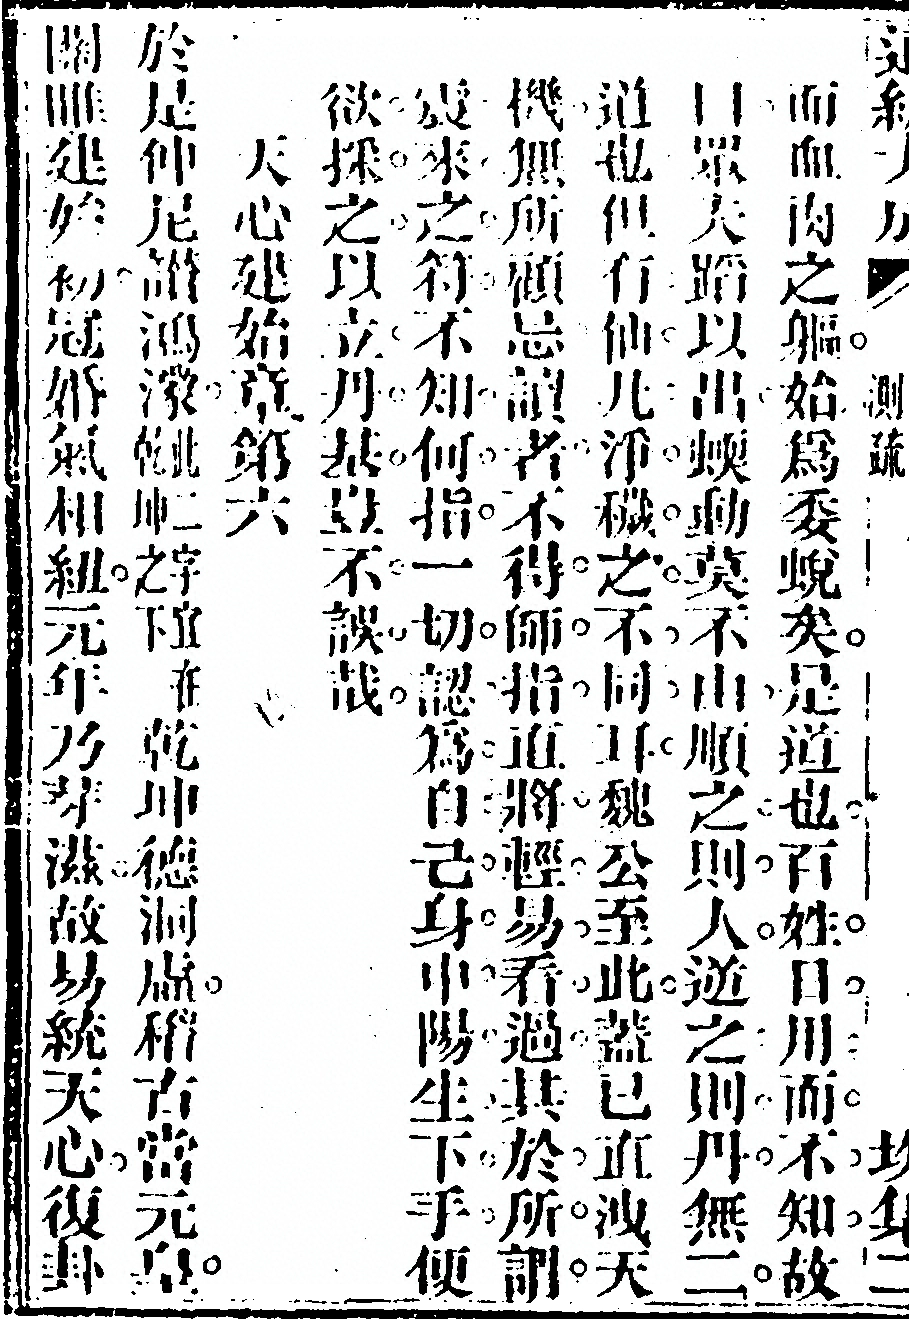 測疏
而血肉之軀始爲委蛻矣是道也百姓日用而不知故
曰眾夫蹈以出蝡動莫不由順之則人逆之則丹無二
道也但有仙凡淨穢之不同耳魏公至此葢已直洩天
機無所顧忌讀者不得師指直將輕易看過其於所謂
爰來之符不知何指一切認爲自己身中陽生下手便
欲採之以立丹基豈不誤哉
天心建始章第六
於是仲尼讚鴻濛乾坤之下此二字宜在乾坤德洞虛稽古當元皇
關雎建始初冠婚氣相紐元年乃芽滋故易統天心復卦